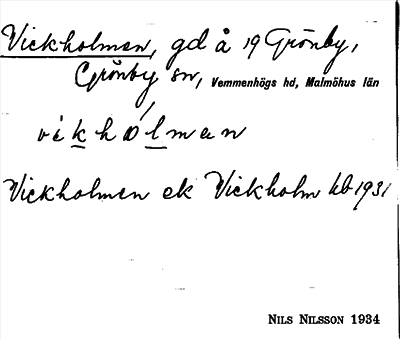 Vickholmen, gd å 19 Grönby,
Grönby sn, Vemmenhögs hd, Malmöhus län
vikhólman
Vickholmen ek Vickholm hb 1931
NILS NILSSON 1934